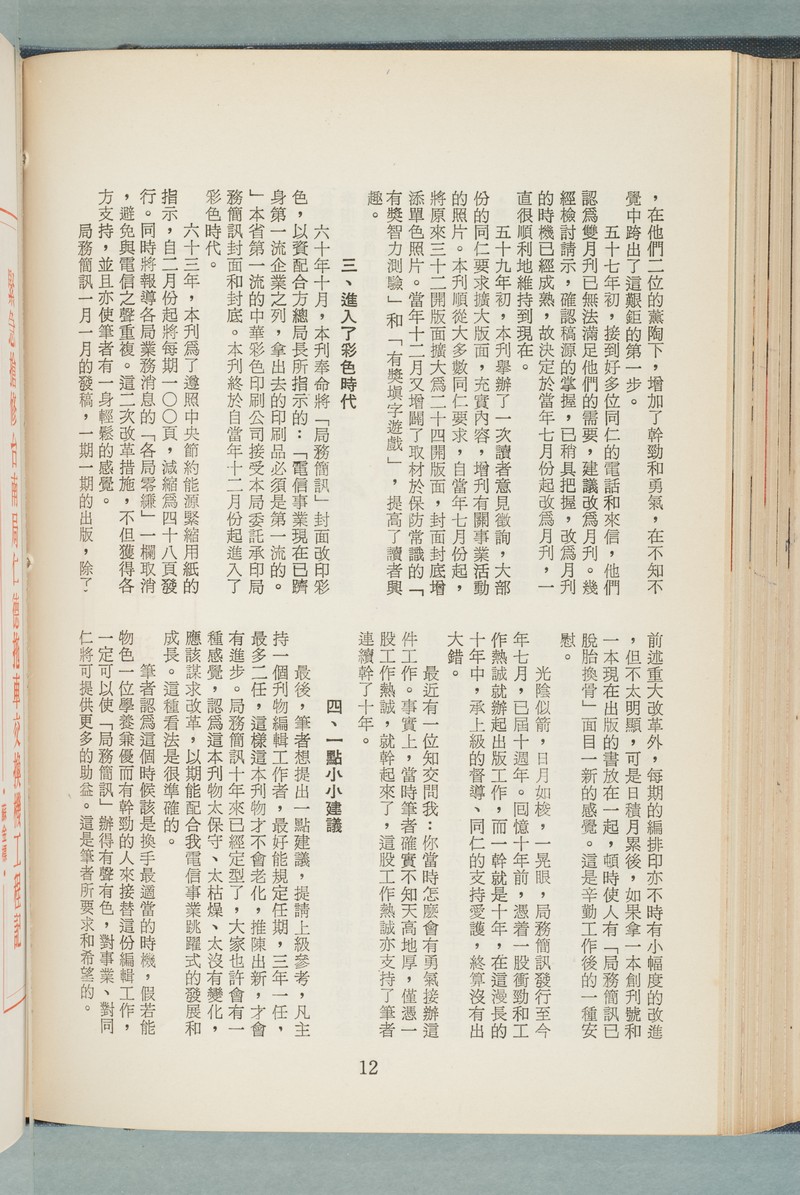 ，在他們二位的薰陶下，增加了幹勁和勇氣，在不知不
覺中跨出了這艱鉅的第一步。
五十七年初，接到好多位同仁的電話和來信，他們
認爲雙月刊已無法滿足他們的需要，建議改爲月刊。幾
經檢討請示，確認稿源的掌握，已稍具把握，改爲月刊
的時機已經成熟，故決定於當年七月份起改爲月刊，一
直很順利地維持到現在。
五十九年初，本刊舉辦了一次讀者意見徵詢，大部
份的同仁要求擴大版面，充實內容，增刊有關事業活動
的照片。本刊順從大多數同仁要求，自當年七月份起，
將原來三十二開版面擴大爲二十四開版面，封面封底增
添單色照片。當年十二月又增闢了取材於保防常識的「
有獎智力測驗」和「有獎塡字遊戲」，提高了讀者興
趣。
三、進入了彩色時代
六十年十月，本刊奉命將「局務簡訊」封面改印彩
色，以資配合方總局長所指示的：「電信事業現在已躋
身第一流企業之列，拿出去的印刷品必須是第一流的。
」本省第一流的中華彩色印刷公司接受本局委託承印局
務簡訊封面和封底。本刊終於自當年十二月份起進入了
彩色時代。
六十三年，本刊爲了遵照中央節約能源緊縮用紙的
指示，自二月份起將每期一〇〇頁，減縮爲四十八頁發
行。同時將報導各局業務消息的「各局零縑」一欄取消
，避免與電信之聲重複。這二次改革措施，不但獲得各
方支持，並且亦使筆者有一身輕鬆的感覺。
局務簡訊一月一月的發稿，一期一期的出版，除了
前述重大改革外，每期的編排印亦不時有小幅度的改進
，但不太明顯，可是日積月累後，如果拿一本創刊號和
一本現在出版的書放在一起，頓時使人有「局務簡訊已
脫胎換骨」面目一新的感覺。這是辛勤工作後的一種安
慰。
光陰似箭，日月如梭，一晃眼，局務簡訊發行至今
年七月，已屆十週年。囘憶十年前，憑着一股衝勁和工
作熱誠就辦起出版工作，而一幹就是十年，在這漫長的
十年中，承上級的督導、同仁的支持愛護，終算沒有出
大錯。
最近有一位知交問我：你當時怎麼會有勇氣接辦這
件工作。事實上，當時筆者確實不知天高地厚，僅憑一
股工作熱誠，就幹起來了，這股工作熱誠亦支持了筆者
連續幹了十年。
四、一點小小建議
最後，筆者想提出一點建議，提請上級參考，凡主
持一個刊物編輯工作者，最好能規定任期，三年一任，
最多二任，這樣這本刊物才不會老化，推陳出新，才會
有進步。局務簡訊十年來已經定型了，大家也許會有一
種感覺，認爲這本刊物太保守、太枯燥、太沒有變化，
應該謀求改革，以期能配合我電信事業跳躍式的發展和
成長。這種看法是很準確的。
筆者認爲這個時候該是換手最適當的時機，假若能
物色一位學養兼優而有幹勁的人來接替這份編輯工作，
一定可以使「局務簡訊」辦得有聲有色，對事業、對同
仁將可提供更多的助益。這是筆者所要求和希望的。
12